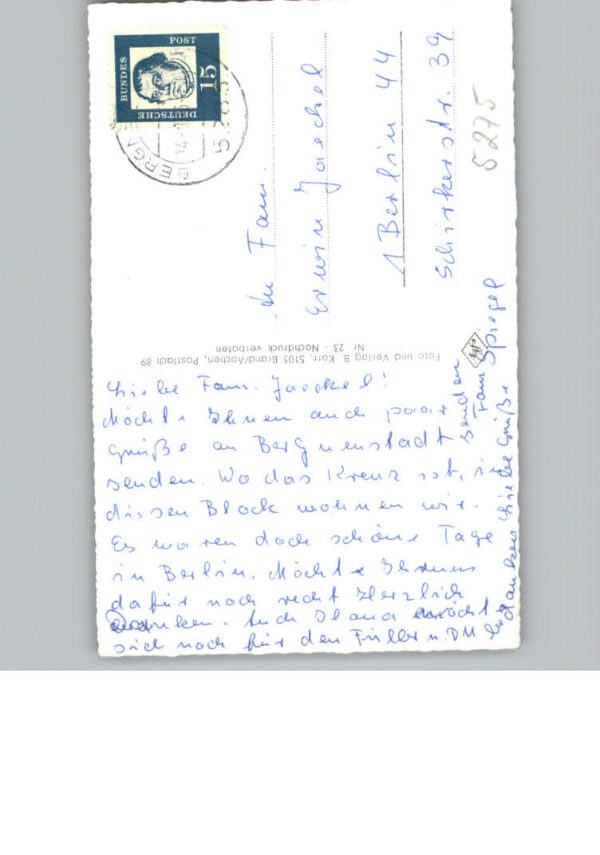 DEUTSCHE
BUNDES
POST
15
BERGN
14.
An Fam.
Erwin Jaeckel
1 Berlin 44
Schierkerstr. 39
5275
Foto und Verlag B. Korr, 5105 Brand/Aachen, Postfach 89
Nr. 23 - Nachdruck verboten
Liebe Fam. Jaeckel!
Möchte Ihnen auch paar
Grüße an Bergneustadt
senden. Wo das Kreuz ist, in
diesen Block wohnen wir.
Es waren doch schöne Tage
in Berlin. Möchte Ihnen
dafür noch recht Herzlich
danken. Auch möcht
sich noch für den Füller u. DM
bedanken Liebe Grüße
senden
Fam Spiegel